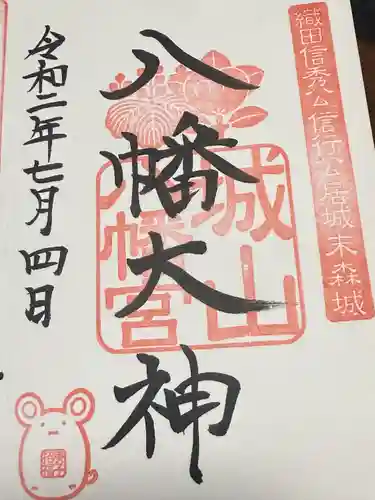 織田信秀公信行公居城末森城
八幡大神
城山八幡宮
令和二年七月四日